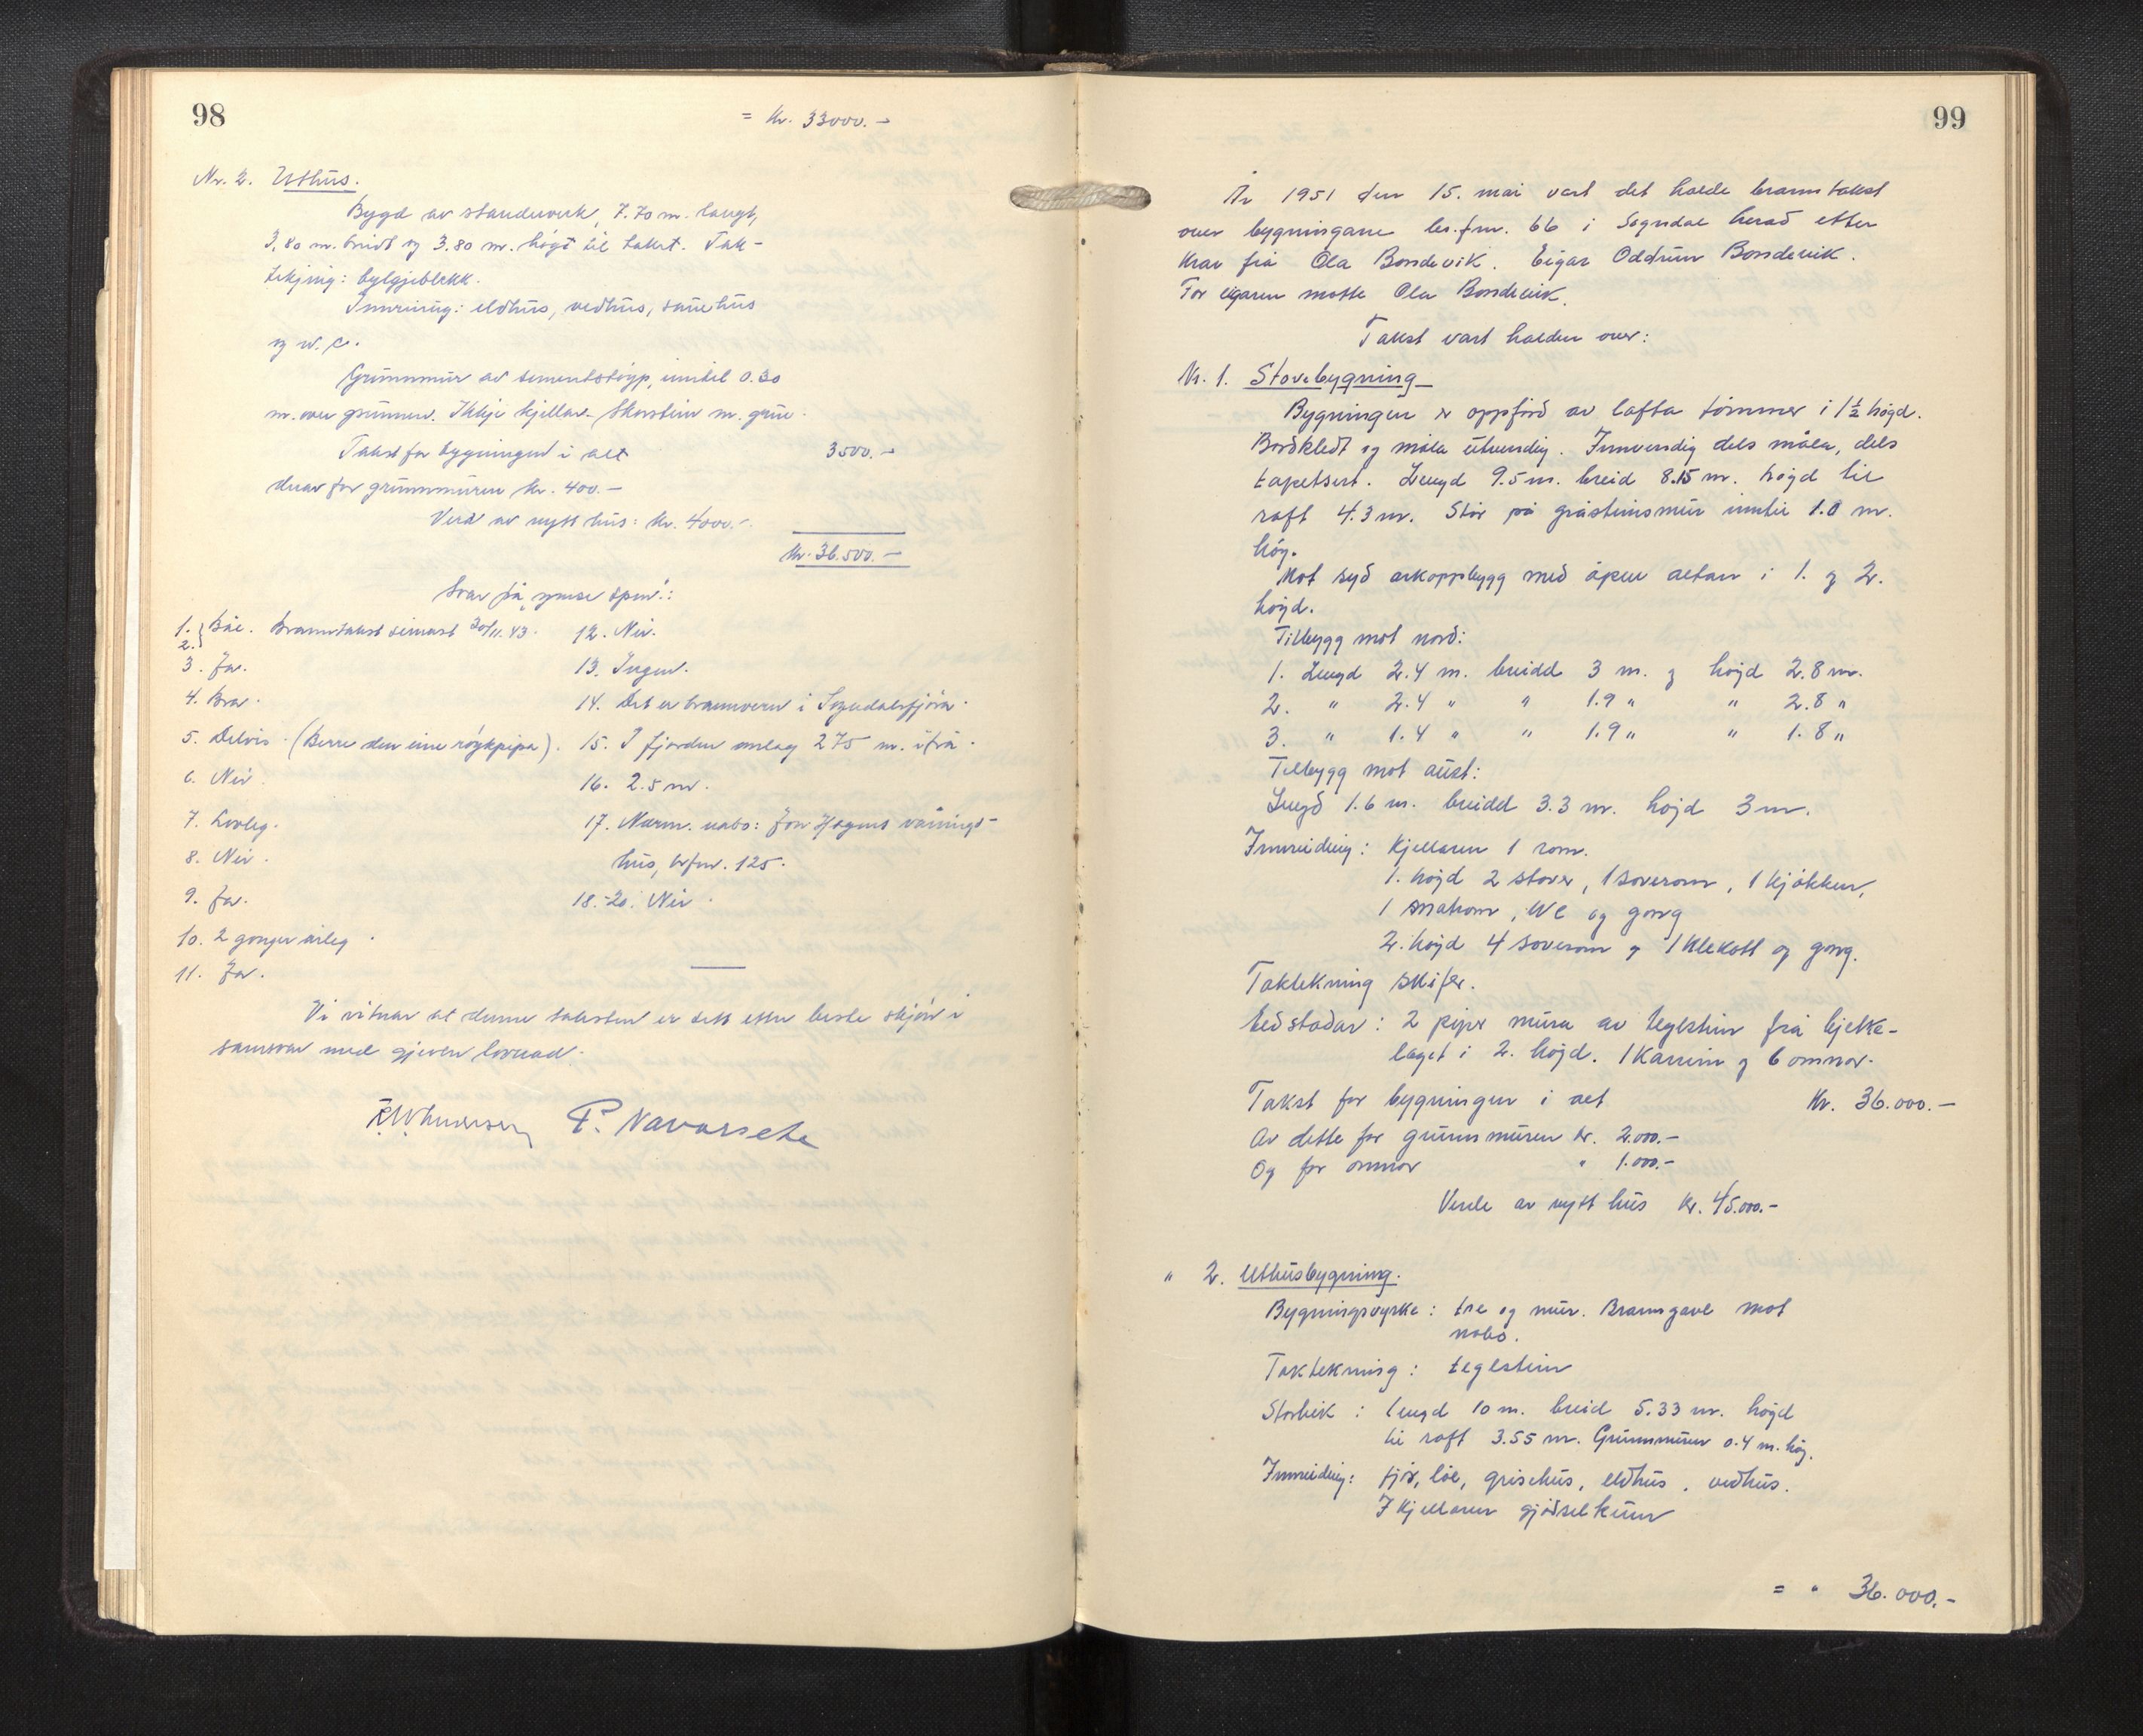 98
= Kr. 33000.-
Nr. 2. Uthus.
Bygd av standerverk, 7.70 m. langt,
3,80 m. breidt og 3.80 m. högt til taket. Tak-
tekjing: bylgjeblekk.
Innreiing: eldhus, vedhus, sauehus
og w.c.
Grunnmur av sementstöyp, inntil 0.30
m. over grunnen. Ikkje kjellar. Skorstein m. grue.
Takst for bygningen i alt 3500.-
derav for grunnmuren kr. 400.-
Verd av nytt hus: kr. 4000.-
Kr. 36.500.-
Svar på "ymse spm".:
1. 2.} Båe. Branntakst seinast 30/11.43.
3. Ja.
4. Bra.
5. Delvis. (Berre den eine röykpipa).
6. Nei.
7. Lovleg.
8. Nei.
9. Ja.
10. 2 gonger årleg.
11. Ja.
12. Nei.
13. Ingen.
14. Det er brannvern i Sogndalsfjöra.
15. I fjorden omlag 275 m. ifrå.
16. 2.5 m.
17. Nærm. nabo: Jon Högens vånings-
hus, br.fnr. 125.
18.-20. Nei.
Vi vitnar at denne taksten er sett etter beste skjön i
samsvar med gjeven lovnad.
P. Navarsete
99
År 1951 den 15. mai vart det halde branntakst
over bygningane br.fnr. 66 i Sogndal herad etter
krav frå Ola Bondevik. Eigar Oddrun Bondevik.
For eigaren møtte Ola Bondevik.
Takst vart halden over:
Nr. 1. Stovebygning
Bygningen er oppförd av lafta tömmer i 1½ högd.
Bordkledt og måla utvendig. Innvendig dels måla, dels
tapetsert. Lengd 9.5 m. breid 8.15 m. högd til
raft 4.3 m. Står på gråsteinsmur inntil 1.0 m.
hög.
Mot syd arkoppbygg med åpen altan i 1. og 2.
högd.
Tilbygg mot nord:
1. Lengd 2.4 m. breidd 3 m. og högd 2.8 m.
2. " 2.4 " " 1.9 " " 2.8 "
3. " 1.4 " " 1.9 " " 1.8 "
Tilbygg mot aust:
Lengd 1.6 m. breidd 3.3 m. högd 3 m.
Innreiding: Kjellaren 1 rom.
1. högd 2 stover, 1 soverom, 1 kjökken,
1 matrom, WC og gong
2. högd 4 soverom og 1 klekott og gong.
Taktekning skifer.
Eldstadar: 2 piper mura av teglstein frå bjelke-
laget i 2. högd. 1 kamin og 6 omnar.
Takst for bygningen i alt Kr. 36.000.-
Av dette for grunnmuren kr. 2.000.-
Og for omnar " 1.000.-
Verde av nytt hus kr. 45.000.-
" 2. Uthusbygning.
Bygningsvyrke: tre og mur. Branngavl mot
nabo.
Taktekning: teglstein
Storleik: lengd 10 m. breid 5.33 m. högd
til raft 3.55 m. Grunnmuren 0.4 m. hög.
Innreiding: fjös, löe, grisehus, eldhus, vedhus.
I kjellaren gjödselkum
= " 36.000.-